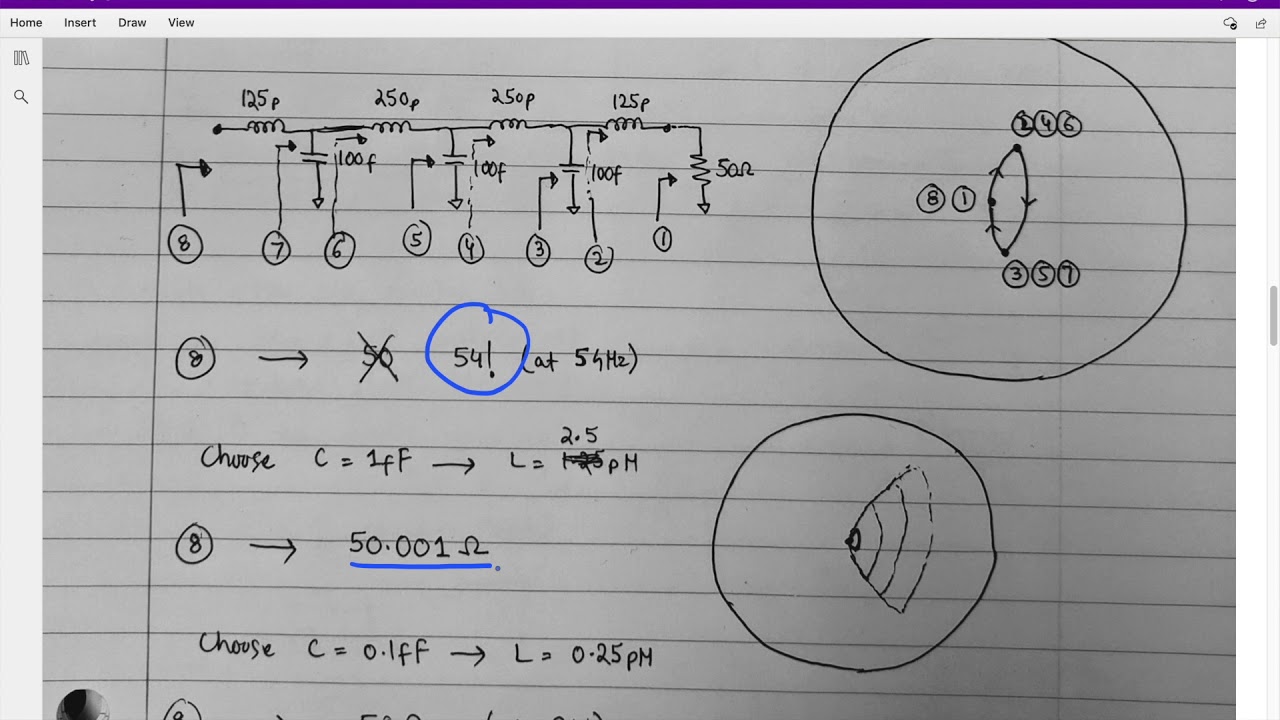 Home Insert Draw View
125p 250p 250p 125p
100f 100f 100f 50Ω
8 7 6 5 4 3 2 1
2 4 6
8 1
3 5 7
8 → 50 54! (at 5GHz)
2.5
Choose C = 1fF → L = pH
8 → 50.001 Ω
Choose C = 0.1fF → L = 0.25pH